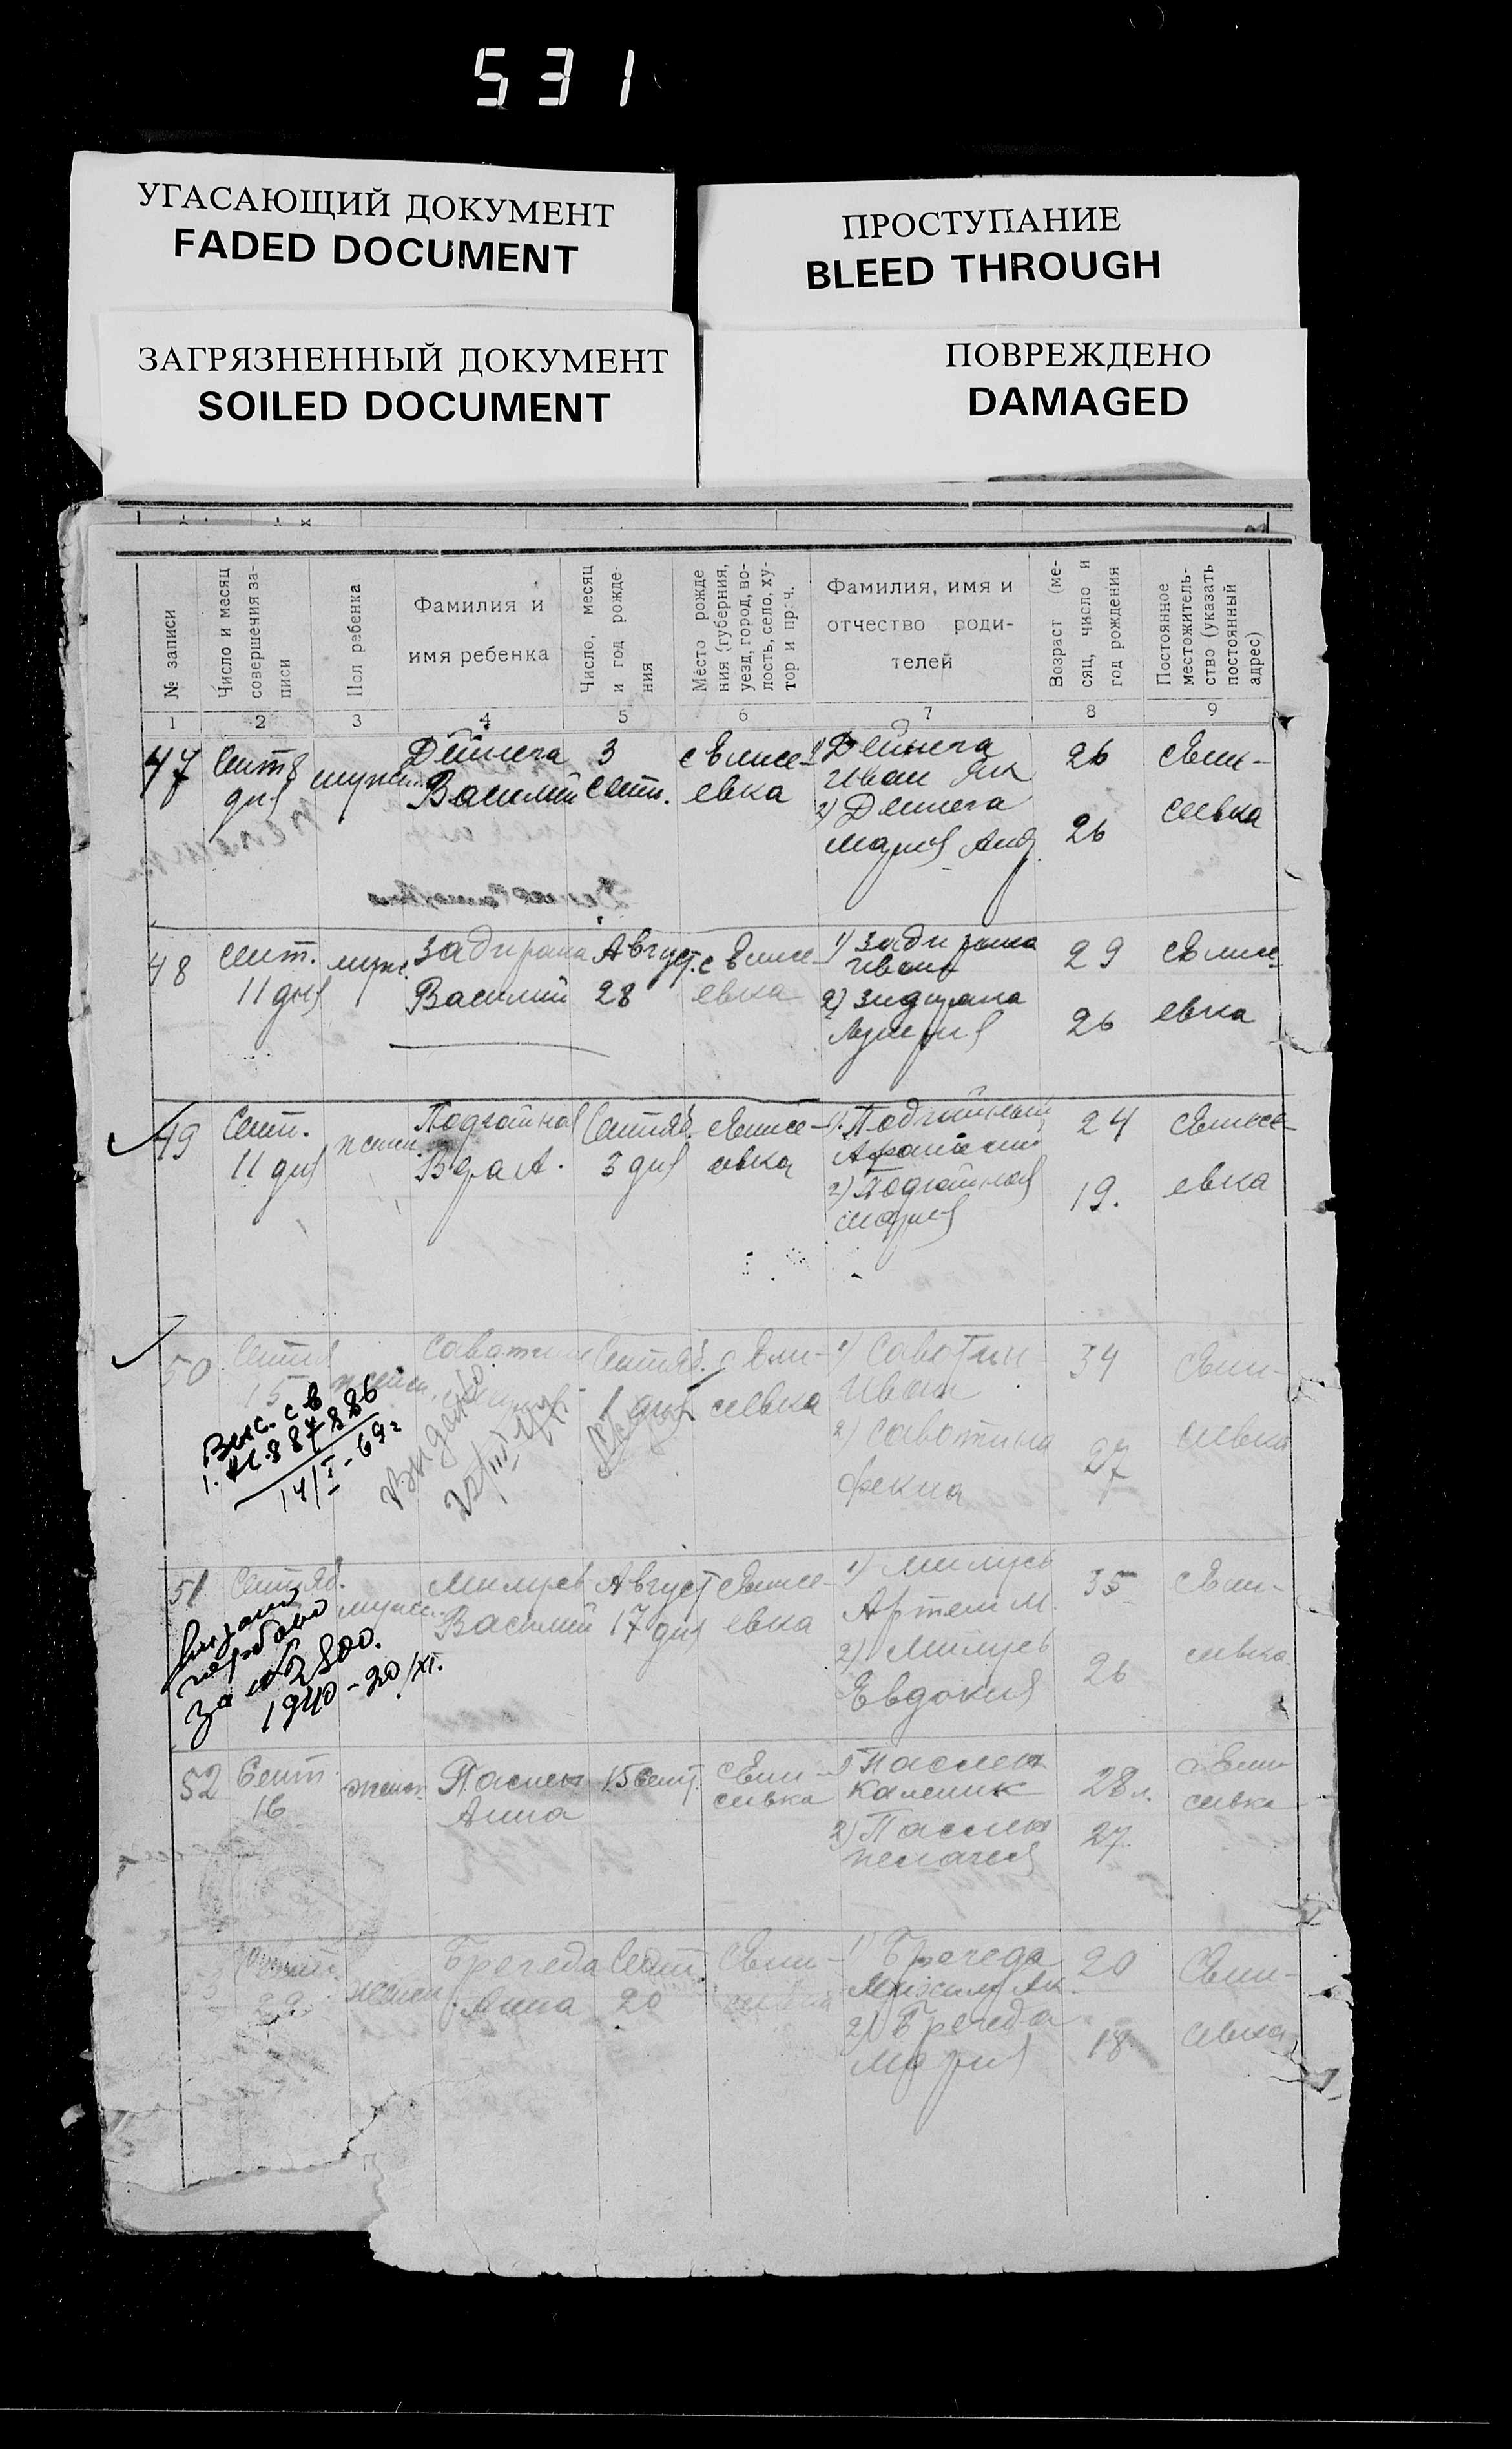 531
УГАСАЮЩИЙ ДОКУМЕНТ
FADED DOCUMENT
ПРОСТУПАНИЕ
BLEED THROUGH
ЗАГРЯЗНЕННЫЙ ДОКУМЕНТ
SOILED DOCUMENT
ПОВРЕЖДЕНО
DAMAGED
№ записи
Число и месяц
совершения за-
писи
Пол ребенка
Фамилия и
имя ребенка
Число, месяц
и год рожде-
ния
Место рожде
ния (губерния,
уезд, город, во-
лость, село, ху-
тор и прч.
Фамилия, имя и
отчество роди-
телей
Возраст (ме-
сяц, число и
год рождения
Постоянное
местожитель-
ство (указать
постоянный
адрес)
1 2 3 4 5 6 7 8 9
47
Сент 8
дня
мужск.
Дейнега
Василий
3
Сент.
с Елисе-
евка
1) Дейнега
Иван Як
2) Дейнега
Мария Анд.
26
26
48
Сент.
11 дня
муж.
Задирака
Василий
Август.
28
с Елисе-
евка
1) Задирака
Иван
2) Задирака
Мария
29
26
с Елисе-
евка
49
Сент.
11 дня
женск.
Подгайная
Вера А.
Сентяб.
3 дня
с Елисе-
евка
1). Подгайный
Афанасий
2) Подгайная
Мария
24
19.
с Елисе-
евка
50
Сентя
15
женск.
Саватин
Сентяб.
1 дня
с Ели-
сеевка
1) Саватин
Иван
2) Саватина
Фекла
34
27
Выс. с в
887886
14/I-69г
Выдано
22/III
51
Сентяб.
мужск.
Милусь
Василий
Август
17 дня
с Елисе-
евка
1) Милусь
Артем М.
2) Милусь
Евдокия
35
26
за № 2800.
1940-20/XI.
52
Сент.
16
женск.
Паслен
Анна
15 Сент.
с Ели-
сеевка
1) Паслен
Каленик
2) Паслен
Пелагея
28 л.
27.
с Ели-
сеевка
53
Сент.
29
женск.
Брегеда
Анна
Сент.
20
1) Брегеда
2) Брегеда
Мария
20
18